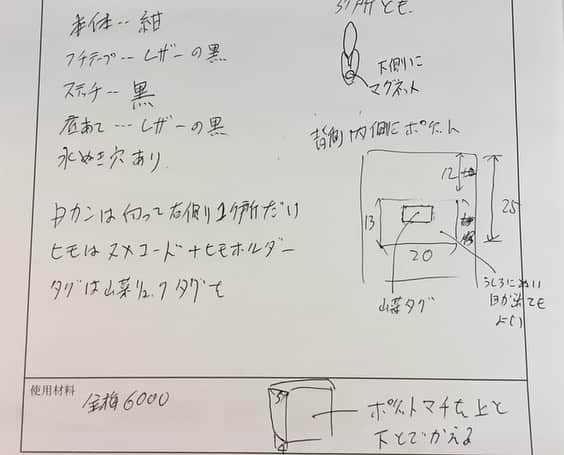 本体…紺
フチテープ…レザーの黒
ステッチ…黒
底あて…レザーの黒
水ぬき穴あり
Dカンは向って右側り1ケ所だけ
ヒモはヌメコード+ヒモホルダー
タグは山菜リュックタグを
3ケ所とも
下側に
マグネット
背側内側にポケット
12
25
13
20
山菜タグ
うしろにぬい
目が出ても
よい
使用材料
6000
ポケットマチを上と
下とでかえる